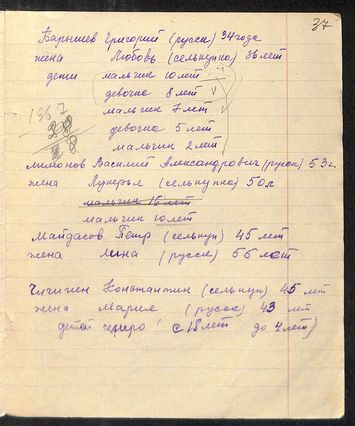 37
Барышев Григорий (русск) 34 года
жена Любовь (селькупка) 36 лет
дети мальчик 10 лет
девочка 8 лет
мальчик 7 лет
девочка 5 лет
мальчик 2 лет
Василий Александрович (русск) 53 г.
жена Лукерья (селькупка) 50 л
мальчик 15 лет
мальчик 10 лет
Майдасов Петр (селькуп) 45 лет
жена (русск) 56 лет
Чигигин Константин (селькуп) 45 лет
жена Мария (русск) 43 лет
детей семеро! с 18 лет до 4 лет)